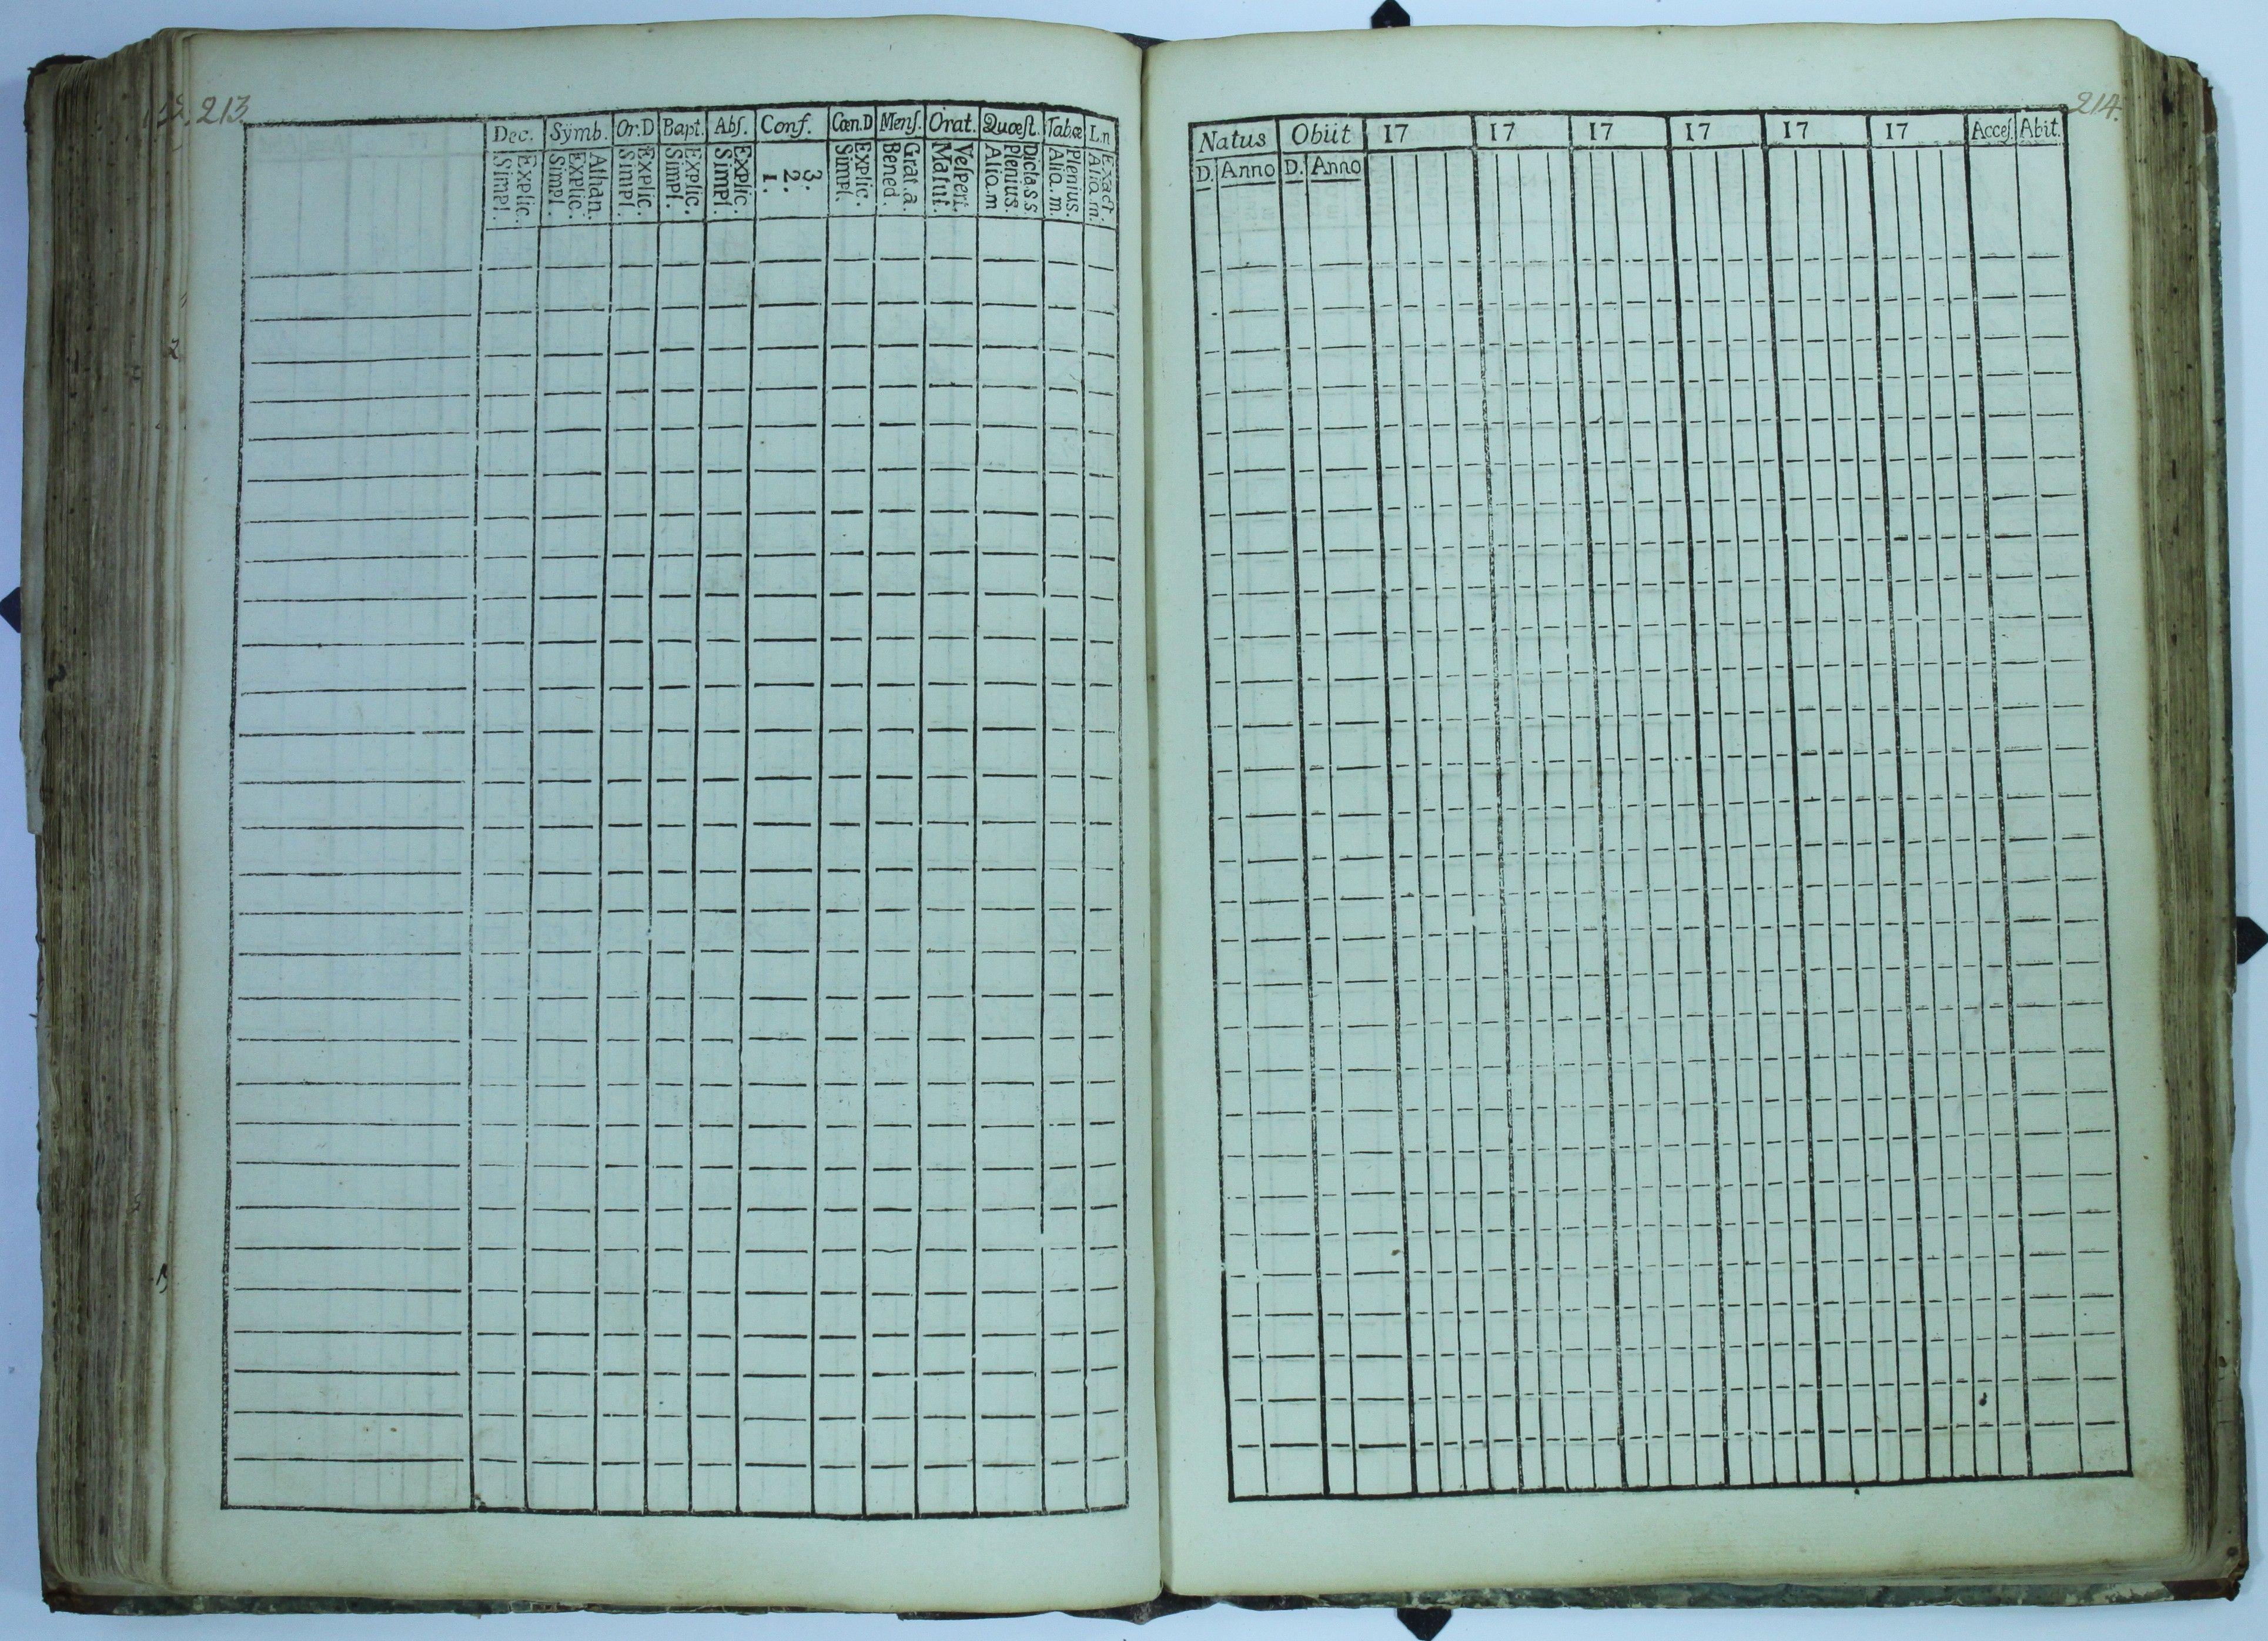 213.
Dec. Sÿmb. Or.D Bapt. Abſ. Conf. Cœn.D Menſ. Orat. Quæſt. Tab.œ L.n
Explic. Simpl. Athan. Explic. Simpl. Explic. Simpl. Explic. Simpl. Explic. Simpl. 3. 2. 1. Explic. Simpl. Grat.a. Bened. Veſpert. Matut. Dicta.s.s Plenius. Aliq.m Plenius. Aliq.m. Exact. Aliq.m.
214.
Natus Obiit 17 17 17 17 17 17 Acceſ. Abit.
D. Anno D. Anno